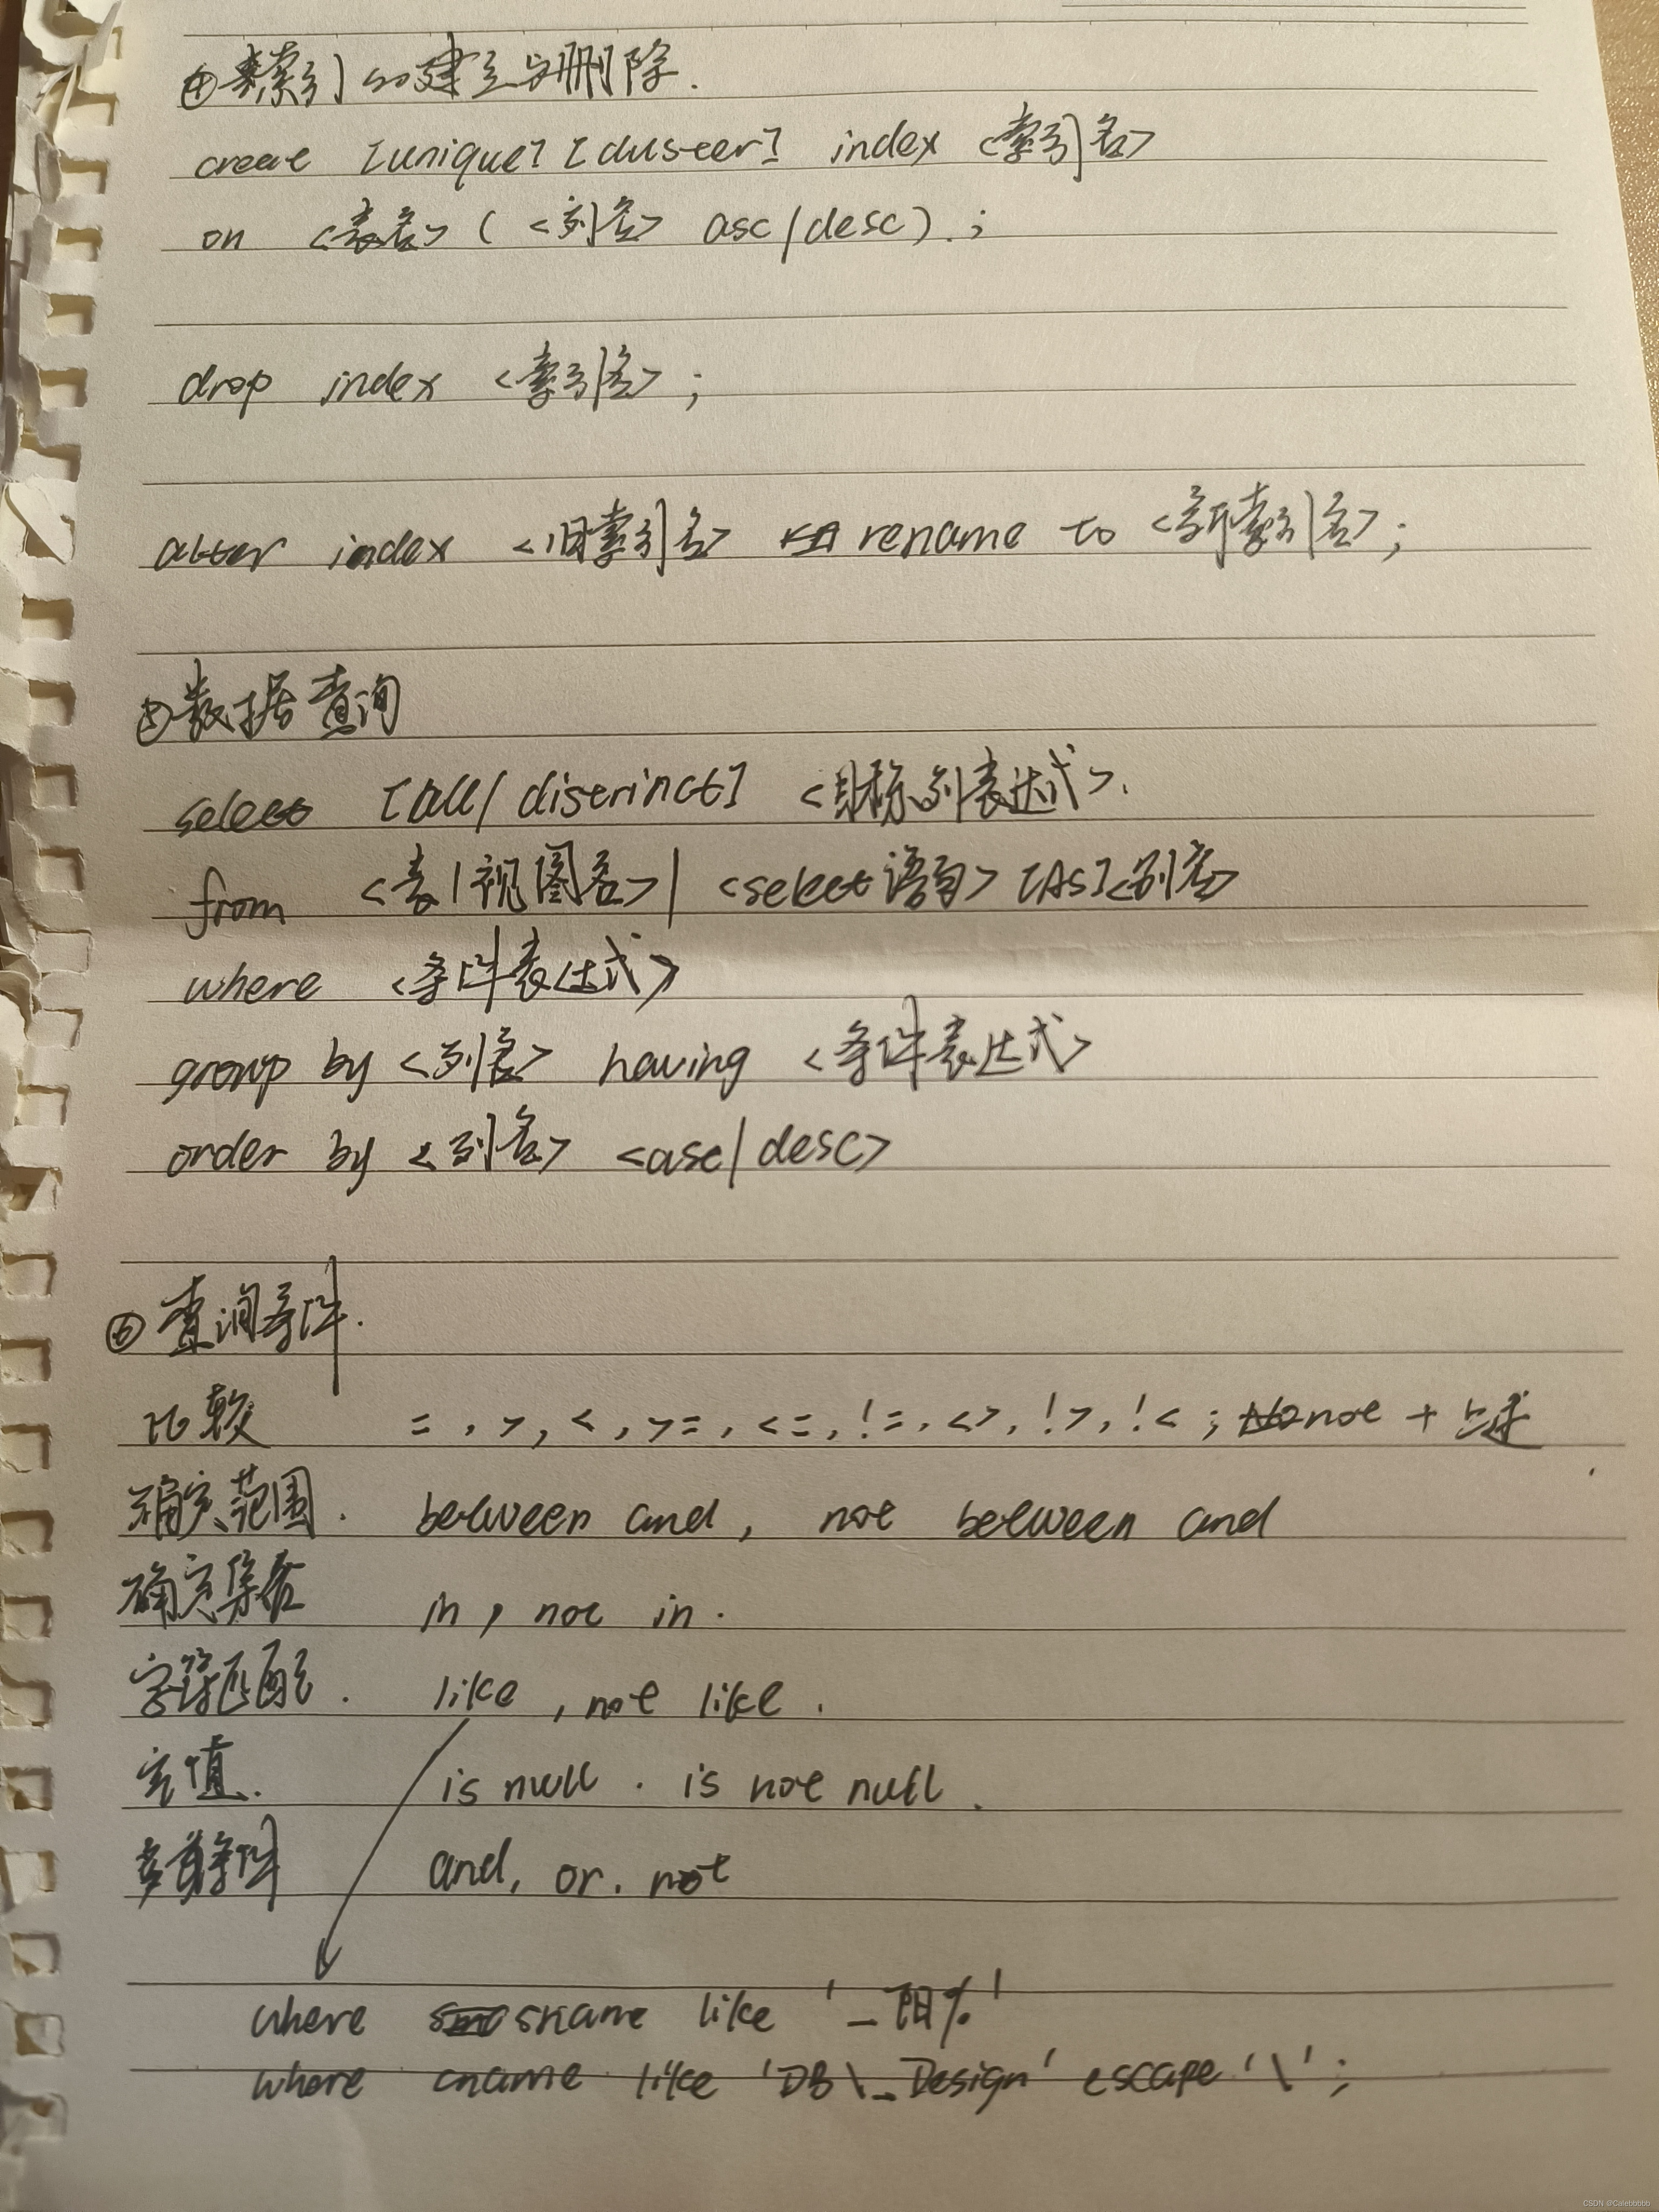 ④索引的建立与删除.
create [unique] [cluster] index <索引名>
on <表名> ( <列名> asc/desc ) . ;
drop index <索引名> ;
alter index <旧索引名> rename to <新索引名> ;
⑤数据查询
select [all/distinct] <目标列表达式> .
from <表|视图名> | <select语句> [AS]<别名>
where <条件表达式>
group by <列名> having <条件表达式>
order by <列名> <asc/desc>
⑥ 查询条件.
比较 = , > , < , >= , <= , != , <> , !> , !< ; not + 上述
确定范围 . between and , not between and
确定集合 in , not in .
字符匹配 . like , not like .
空值. is null . is not null .
多重条件 and, or. not
where sname like '_阳%'
where cname like 'DB\_Design' escape '\' ;
CSDN @Calebbbbb